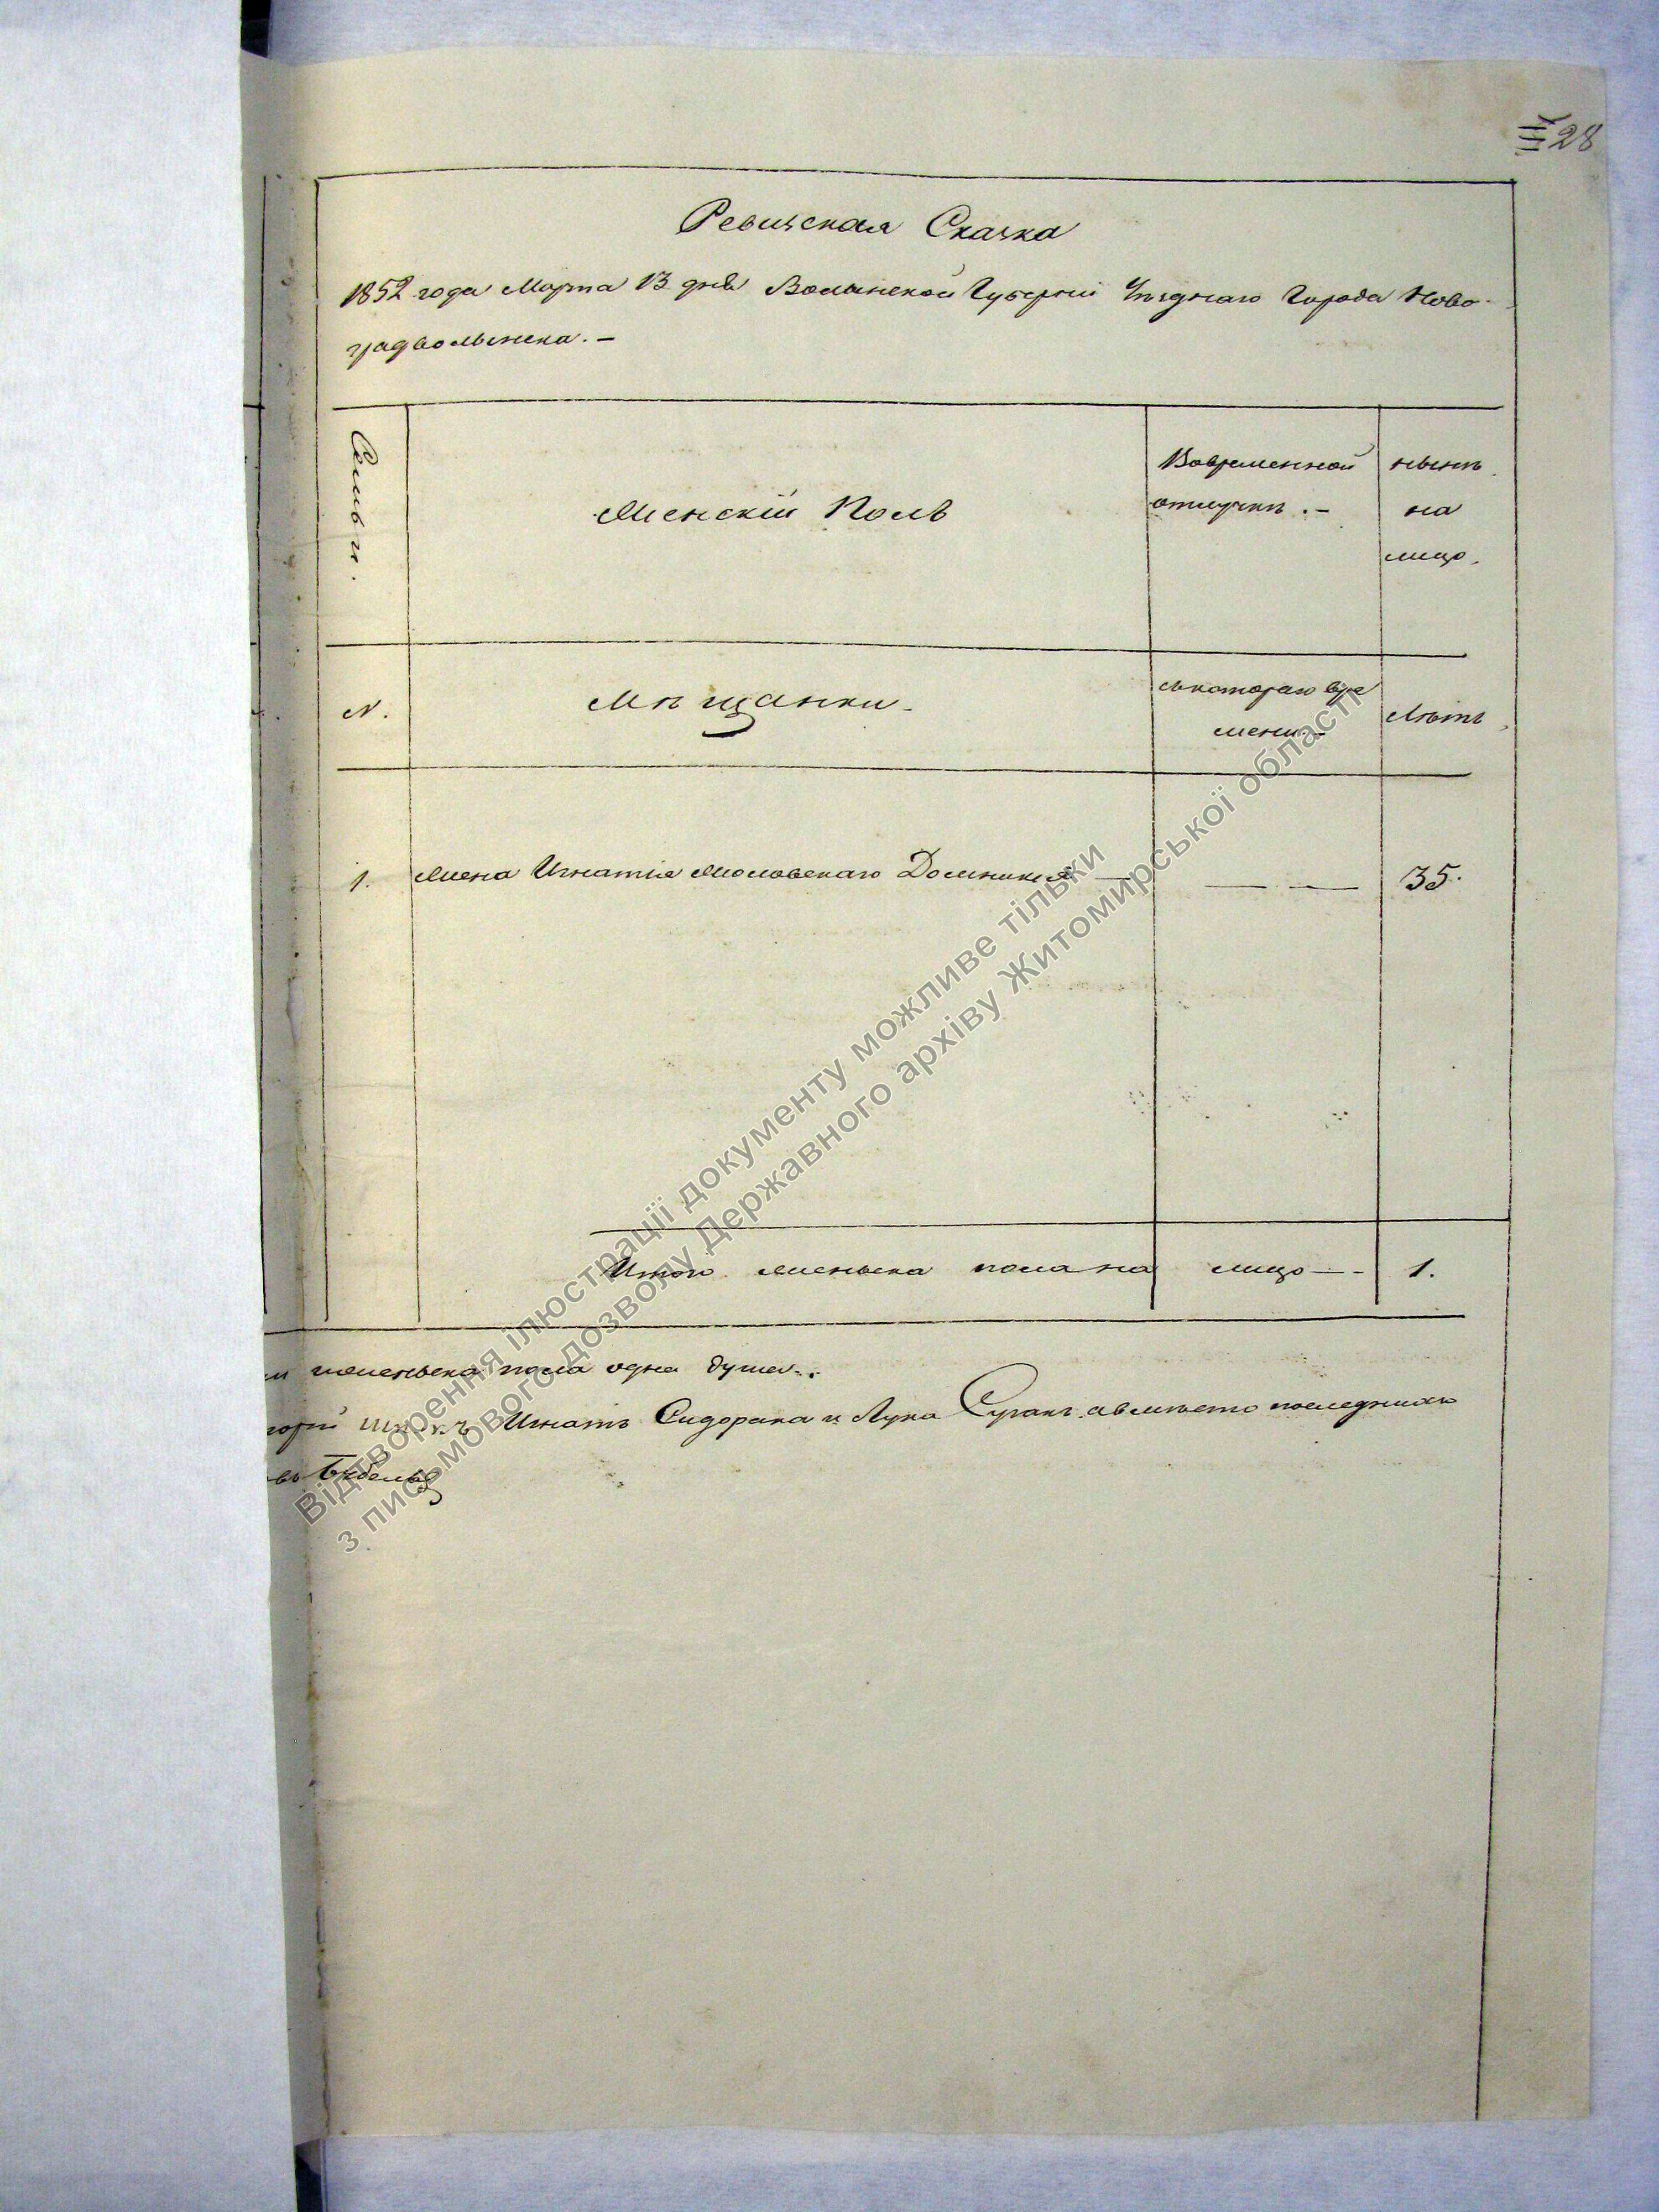 28
Ревизская Сказка
1852 года Марта 13 дня Волынской Губерніи Уѣзднаго Города Ново-
градволынска. –
Семьи.
Женскій Полъ
Вовременной
отлучкѣ. –
нынѣ
на
лицо.
N.
Мѣщанки.
съкотораго вре
мени. –
Лѣтъ
1.
Жена Игнатія Домникія —
— —
35.
Итого женска пола на лицо — -
1.
женьска пола одна душа..
Игнатъ Сидорака и Лука авмѣсто последняго
въ
Відтворення ілюстрації документу можливе тільки
з письмового дозволу Державного архіву Житомирської області